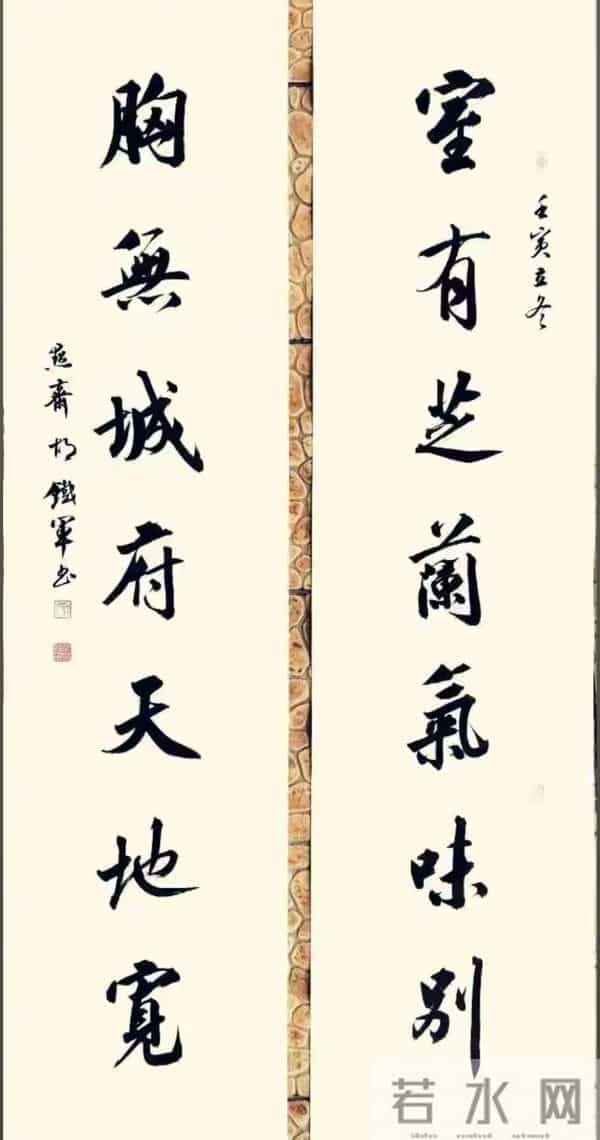 壬寅立冬
室有芝蘭氣味別
胸無城府天地寬
齋胡鐵軍书
若水网